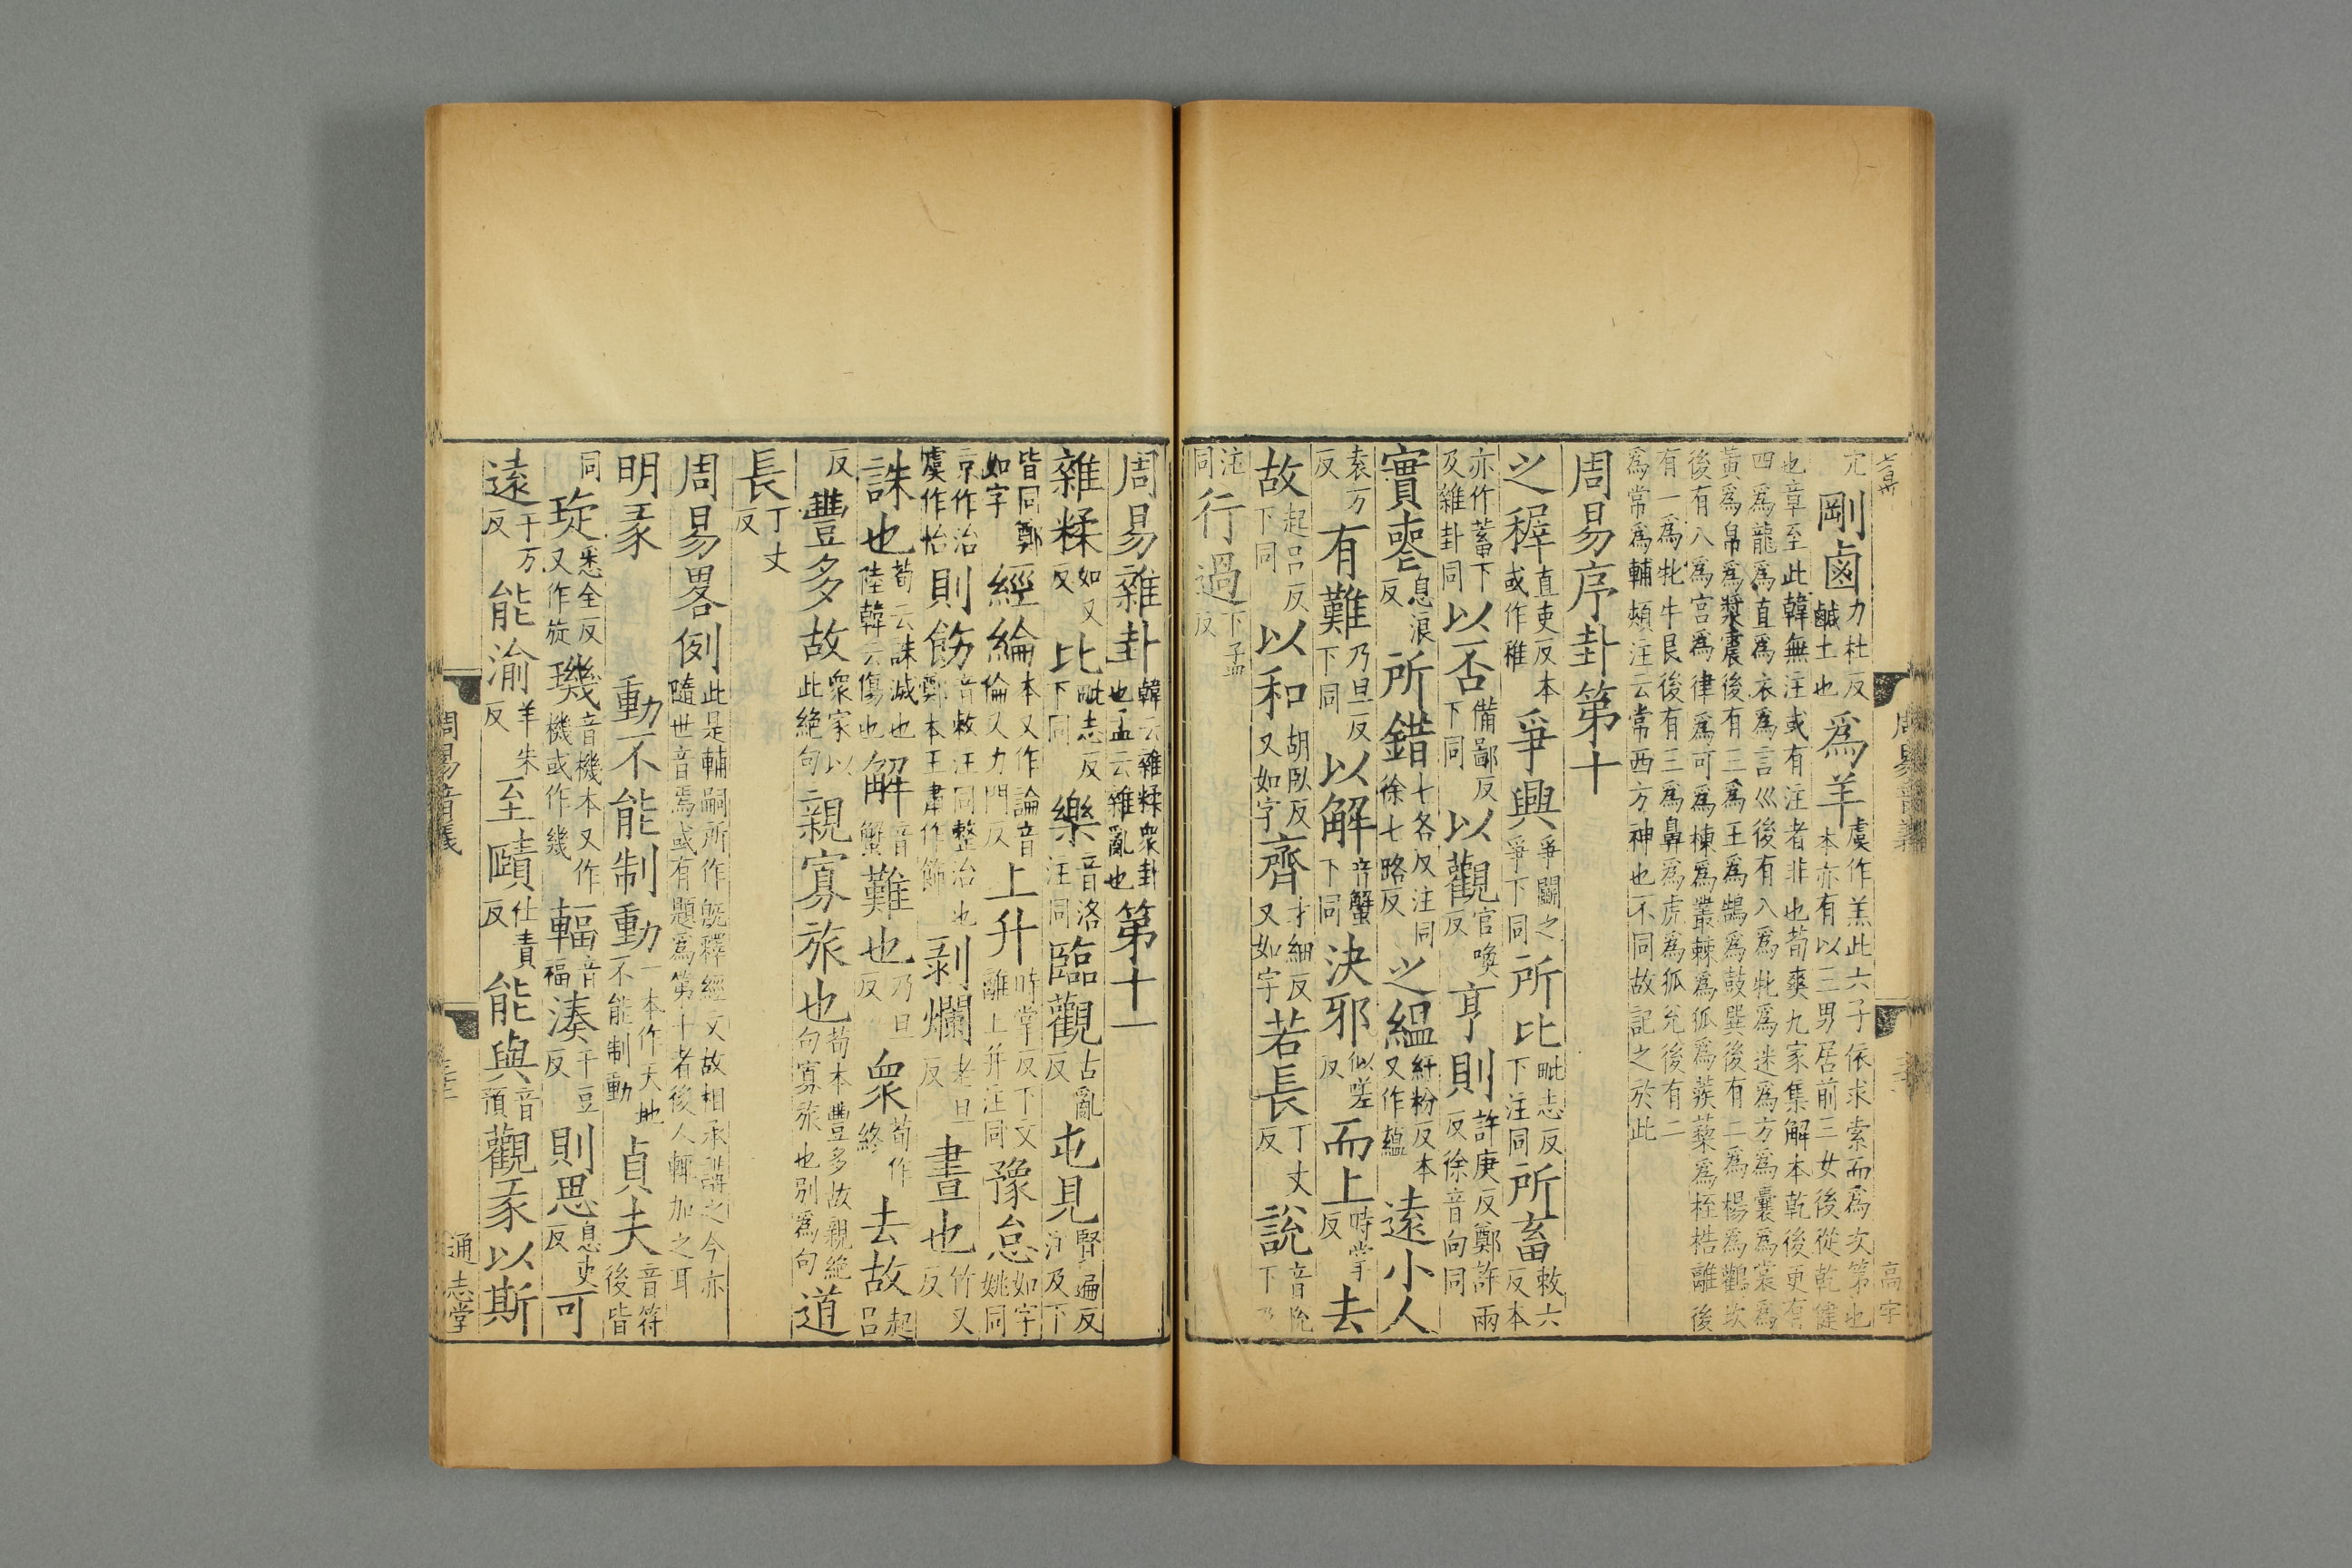 亢剛鹵力杜反鹹土也爲羊虞作羔此六子依求索而爲次第也本亦有以三男居前三女後從乾健
也章至此韓無注或有注者非也荀爽九家集解本乾後更有
四爲龍爲直爲衣爲言巛後有八爲牝爲迷爲方爲囊爲裳爲
黃爲帛爲漿震後有三爲王爲鵠爲鼓巽後有二爲楊爲鸛坎
後有八爲宮爲律爲可爲棟爲叢棘爲狐爲蒺藜爲桎梏離後
有一爲牝牛艮後有三爲鼻爲虎爲狐兌後有二
爲常爲輔頰注云常西方神也不同故記之於此
周易序卦第十
之稺直吏反本或作稚爭興爭鬬之爭下同所比毗志反下注同所畜敕六反本
亦作蓄下及雜卦同以否備鄙反下同以觀官喚反亨則許庚反鄭許兩反徐音向同
實喪息浪反所錯七各反注同徐七路反之縕紆粉反本又作蘊遠小人
袁万反有難乃旦反下同以解音蟹下同決邪似嗟反而上時掌反去
故起呂反下同以和胡臥反又如字齊才細反又如字若長丁丈反說音悅下
注同行過下孟反
周易雜卦韓云雜糅衆卦也孟云雜亂也第十一
雜糅如又反比毗志反下同樂音洛注同臨觀古亂反屯見賢遍反注及下
皆同鄭如字經綸本又作論音倫又力門反上升時掌反下文離上并注同豫怠如字姚同
京作治虞作怡則飭音敕注同整治也鄭本王肅作飾剥爛老旦反晝也竹又反
誅也荀云誅滅也陸韓云傷也解音蟹難也乃旦反衆荀作終去故起呂
反豐多故衆家以此絶句親寡旅也荀本豐多故親絶句寡旅也别爲句道
長丁丈反
周易畧例此是輔嗣所作旣釋經文故相承講之今亦隨世音焉或有題爲第十者後人輒加之耳
明彖動不能制動一本作天地不能制動貞夫音符後皆
同琁悉全反又作旋璣音機本又作機或作幾輻音福湊千豆反則思息吏反可
遠于万反能渝羊朱反至賾仕責反能與音預觀彖以斯
周易音義
通志堂